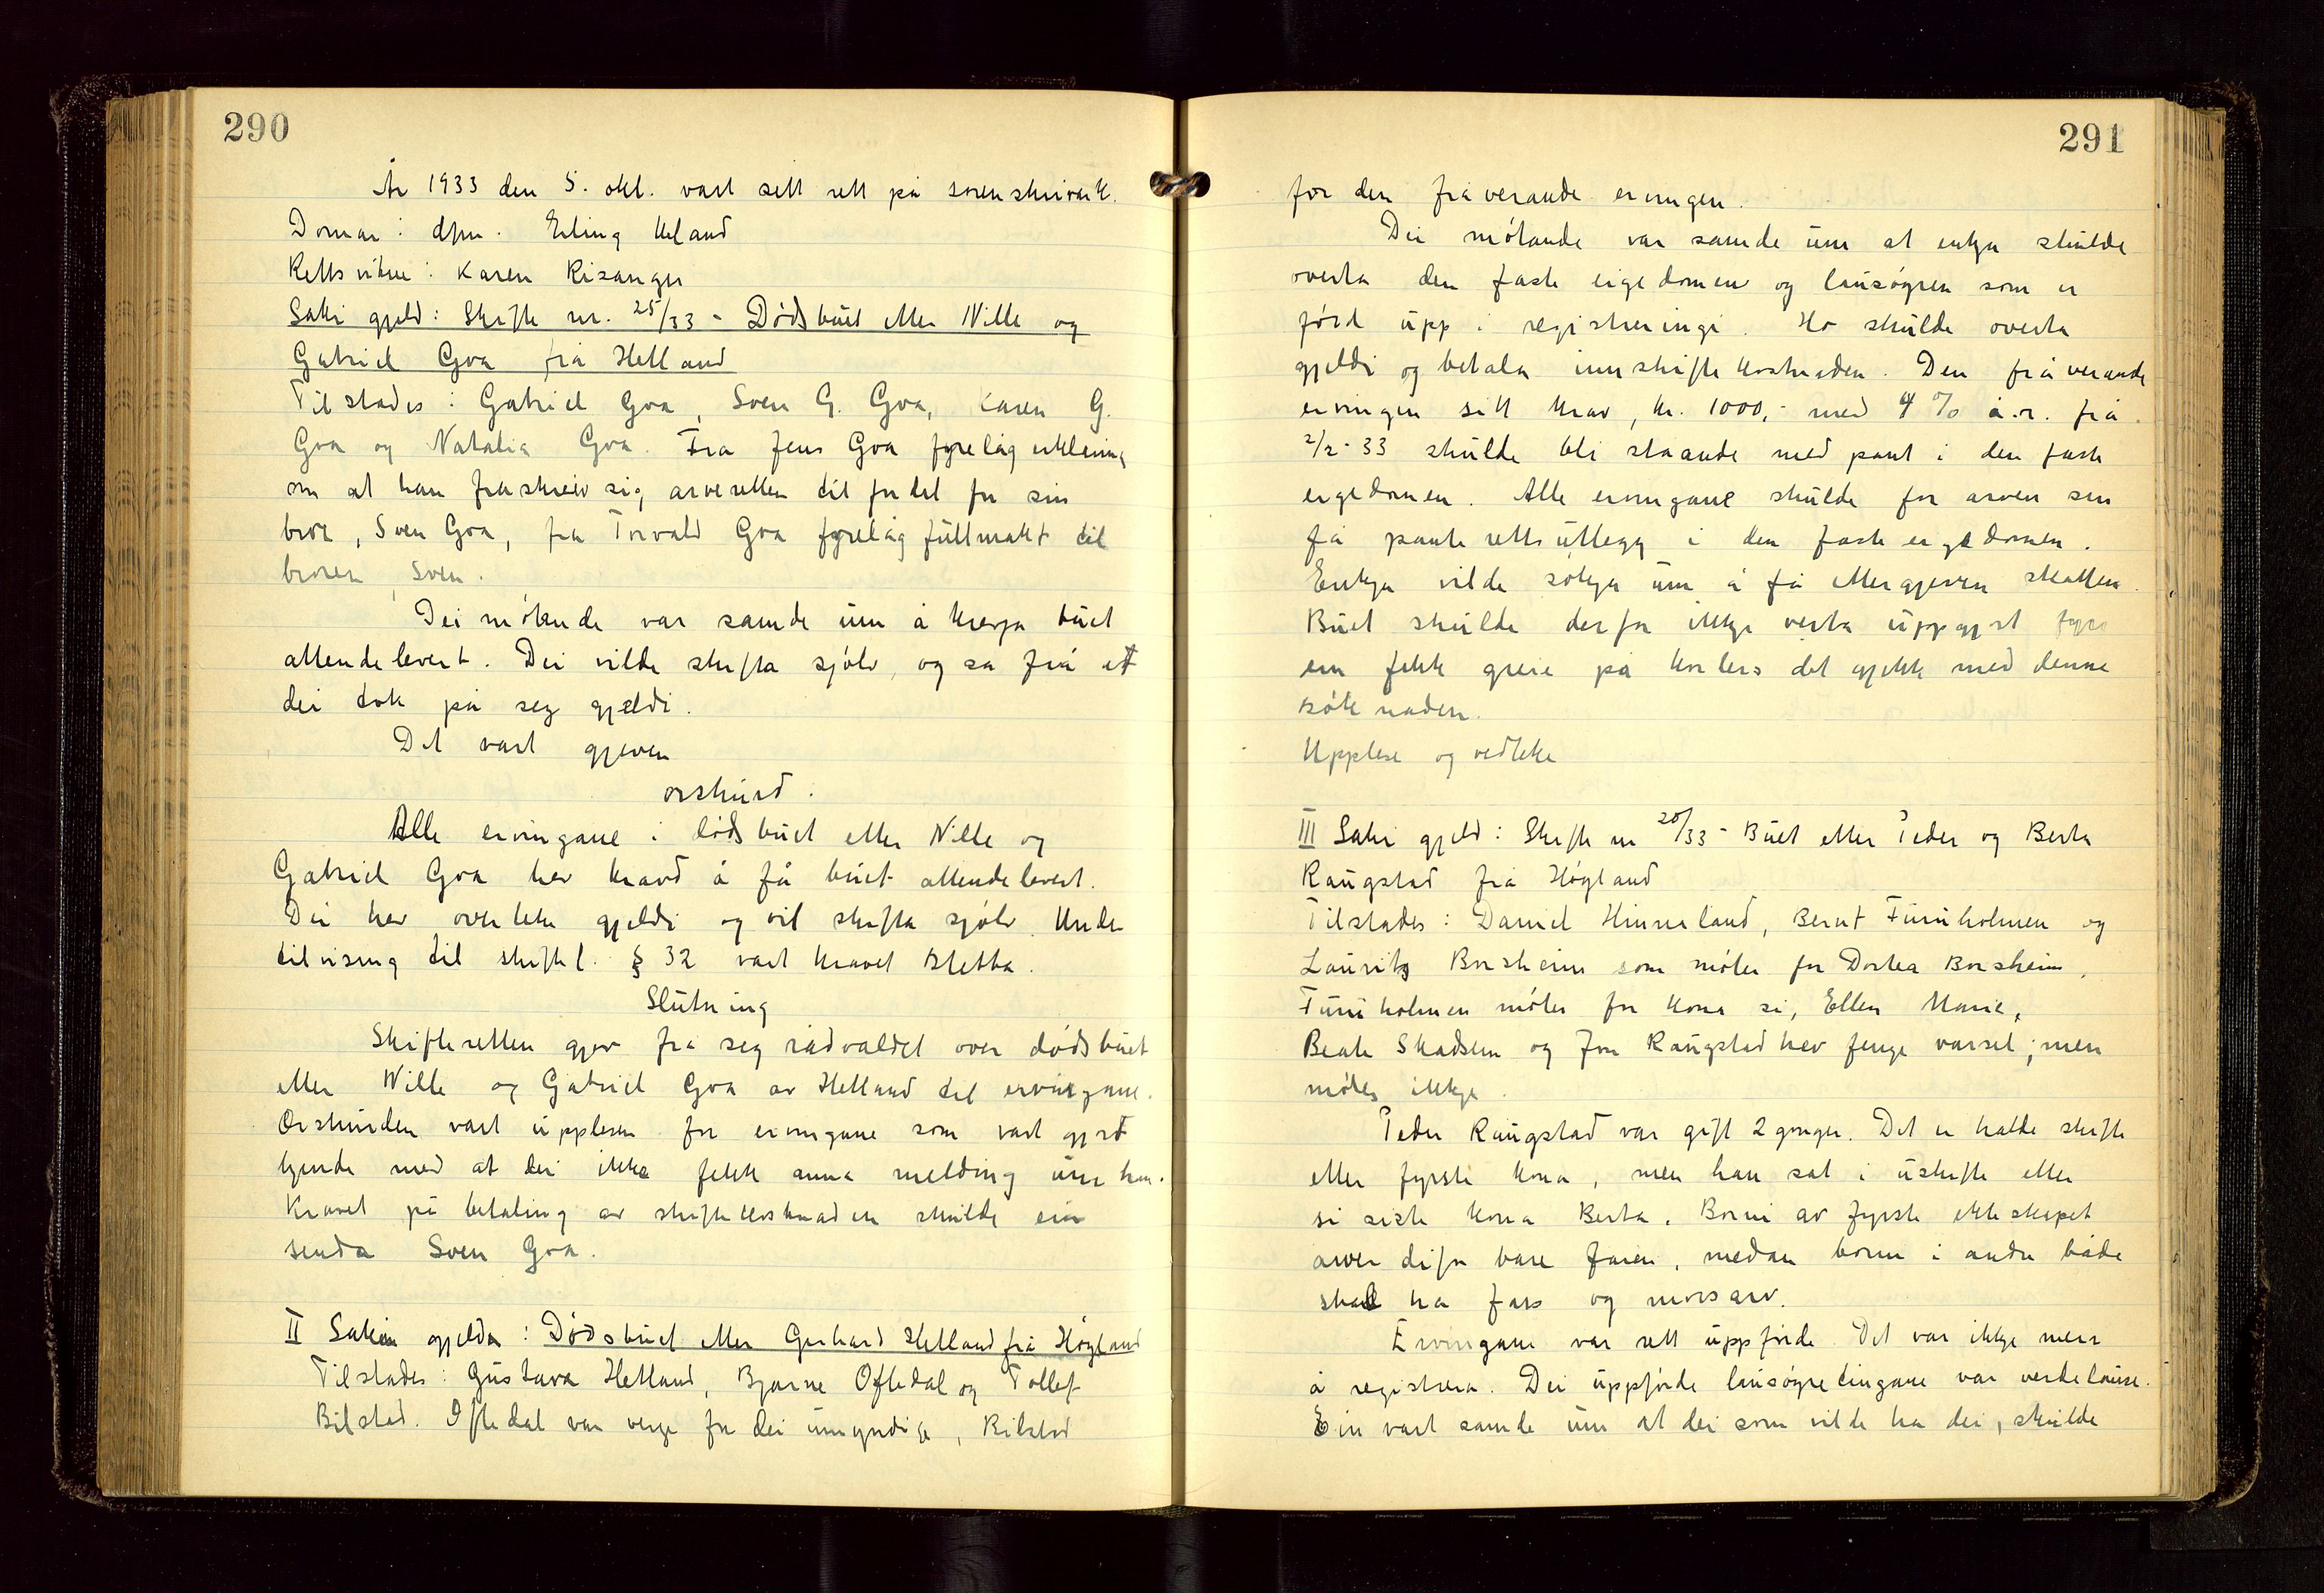 290
År 1933 den 5. okt. vart sett rett på sorenskrivark.
Domar: dfm. Erling Ueland
Rettsvitne: Karen Risanger
Saki gjeld: Skifte nr. 25/33 - Dødsbuet etter Nille og
Gabriel Goa frå Helland
Tilstades: Gabriel Goa, Sven G. Goa, Karen G.
Goa og Natalia Goa. Fra Jens Goa fyrelåg erklering
om at han fraskreiv sig arveretten til fordel for sin
bror, Sven Goa, fra Torvald Goa fyrelåg fullmakt til
broren Sven.
Dei møtande var samde um å krevja buet
attendelevert. Dei vilde skifta sjølv, og sa frå at
dei tok på seg gjeldi.
Det vart gjeven
orskurd.
Alle ervingane i dødsbuet etter Nille og
Gabriel Goa hev kravd å få buet attendelevert.
Dei hev overteke gjeldi og vil skifta sjølv. Under
tilvising til skiftel. § 32 vart kravet stetta.
Slutning
Skifteretten gjev frå seg rådvaldet over dødsbuet
etter Nille og Gabriel Goa av Helland til ervingane.
Orskurden vart upplesen for ervingane som vart gjort
kjende med at dei ikke fekk anna melding um han.
Kravet på betaling av skiftekostnaden skulde ein
senda Sven Goa.
II Saken gjelda: Dødsbuet etter Gerhard Helland frå Høyland
Tilstades: Gustava Helland, Bjarne Oftedal og Tollef
Bilstad. Oftedal var verge for dei umyndige, Bilstad
291
for den fråverande ervingen.
Dei møtande var samde um at enkja skulde
overta den faste eigedomen og lausøyren som er
førd upp i registreringi. Ho skulde overta
gjeldi og betala innskiftekostnaden. Den fråverande
ervingen sitt krav, kr. 1000,- med 4 % å.r. frå
2/2-33 skulde bli ståande med pant i den faste
eigedomen. Alle ervingane skulde for arven sin
få panterettsutlegg i den faste eigedomen.
Enkja vilde søkja um å få ettergjeven skatten.
Buet skulde derfor ikkje verta uppgjort fyre
ein fekk greie på korleis det gjekk med denne
søknaden.
Upplese og vedteke
III Saki gjeld: Skifte nr 20/33 - Buet etter Peder og Berta
Raugstad frå Høyland
Tilstades: Daniel Hinnerland, Bernt Furuholmen og
Lauritz Borsheim som møter for Dortea Borsheim,
Furuholmen møter for kona si, Ellen Marie,
Beate Skadsem og Jon Raugstad hev fenge varsel; men
møter ikkje.
Peder Raugstad var gift 2 gonger. Det er halde skifte
etter fyrste kona, men han sat i uskifte etter
si siste kona Berta. Borni av fyrste ekteskapet
arver difor bare faren, medan borni i andre både
skal ha fars og morsarv.
Ervingane var rett uppførde. Det var ikkje meir
å registrera. Dei uppførde lausøyretingane var verdelause.
Ein vart samde um at dei som vilde ha dei, skulde